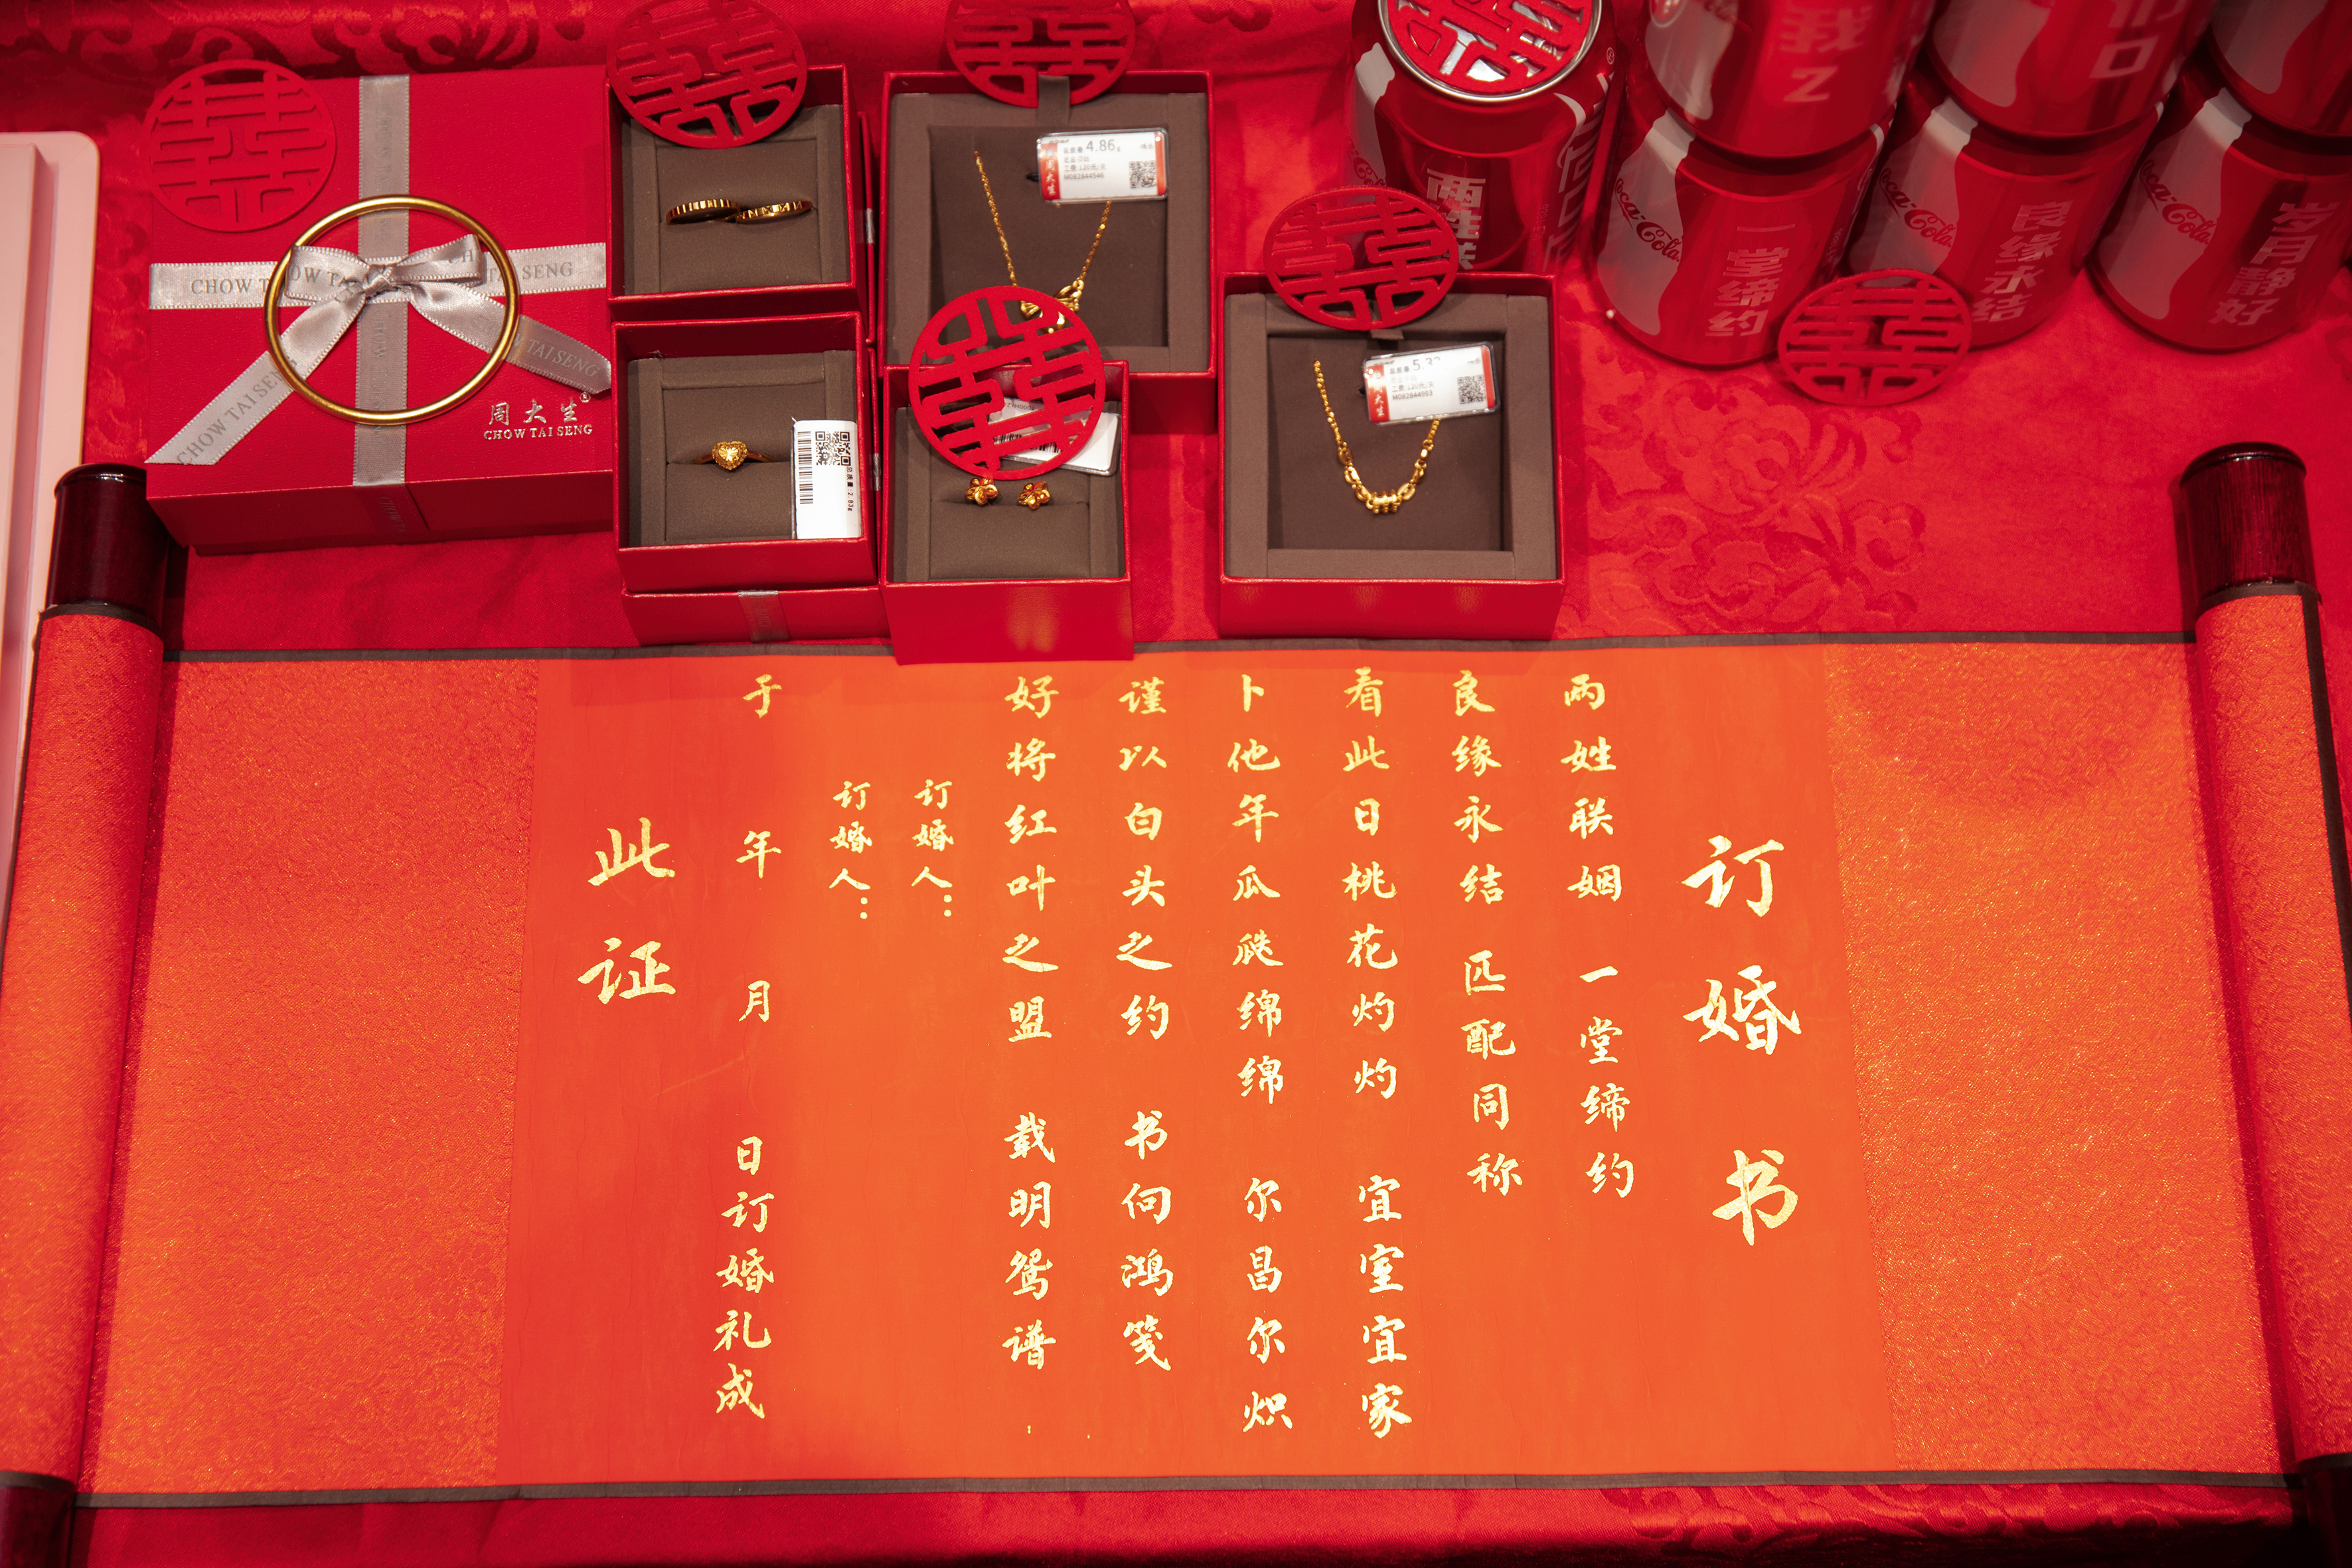 囍
囍
囍
囍
囍
囍
囍
CHOW TAI SENG
CHOW TAI SENG
TAI SENG
周大生®
CHOW TAI SENG
4.86g
M082844546
大生
M082844593
一堂缔约
良缘永结
岁月静好
Coca-Cola
Coca-Cola
Coca-Cola
订婚书
两姓联姻 一堂缔约
良缘永结 匹配同称
看此日桃花灼灼 宜室宜家
卜他年瓜瓞绵绵 尔昌尔炽
谨以白头之约 书向鸿笺
好将红叶之盟 载明鸳谱
订婚人：
订婚人：
于 年 月 日订婚礼成
此证